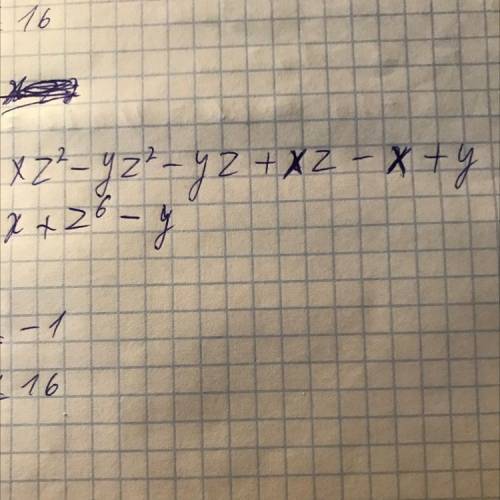 16
xz² - yz² - yz + xz - x + y
x + z⁶ - y
= -1
16